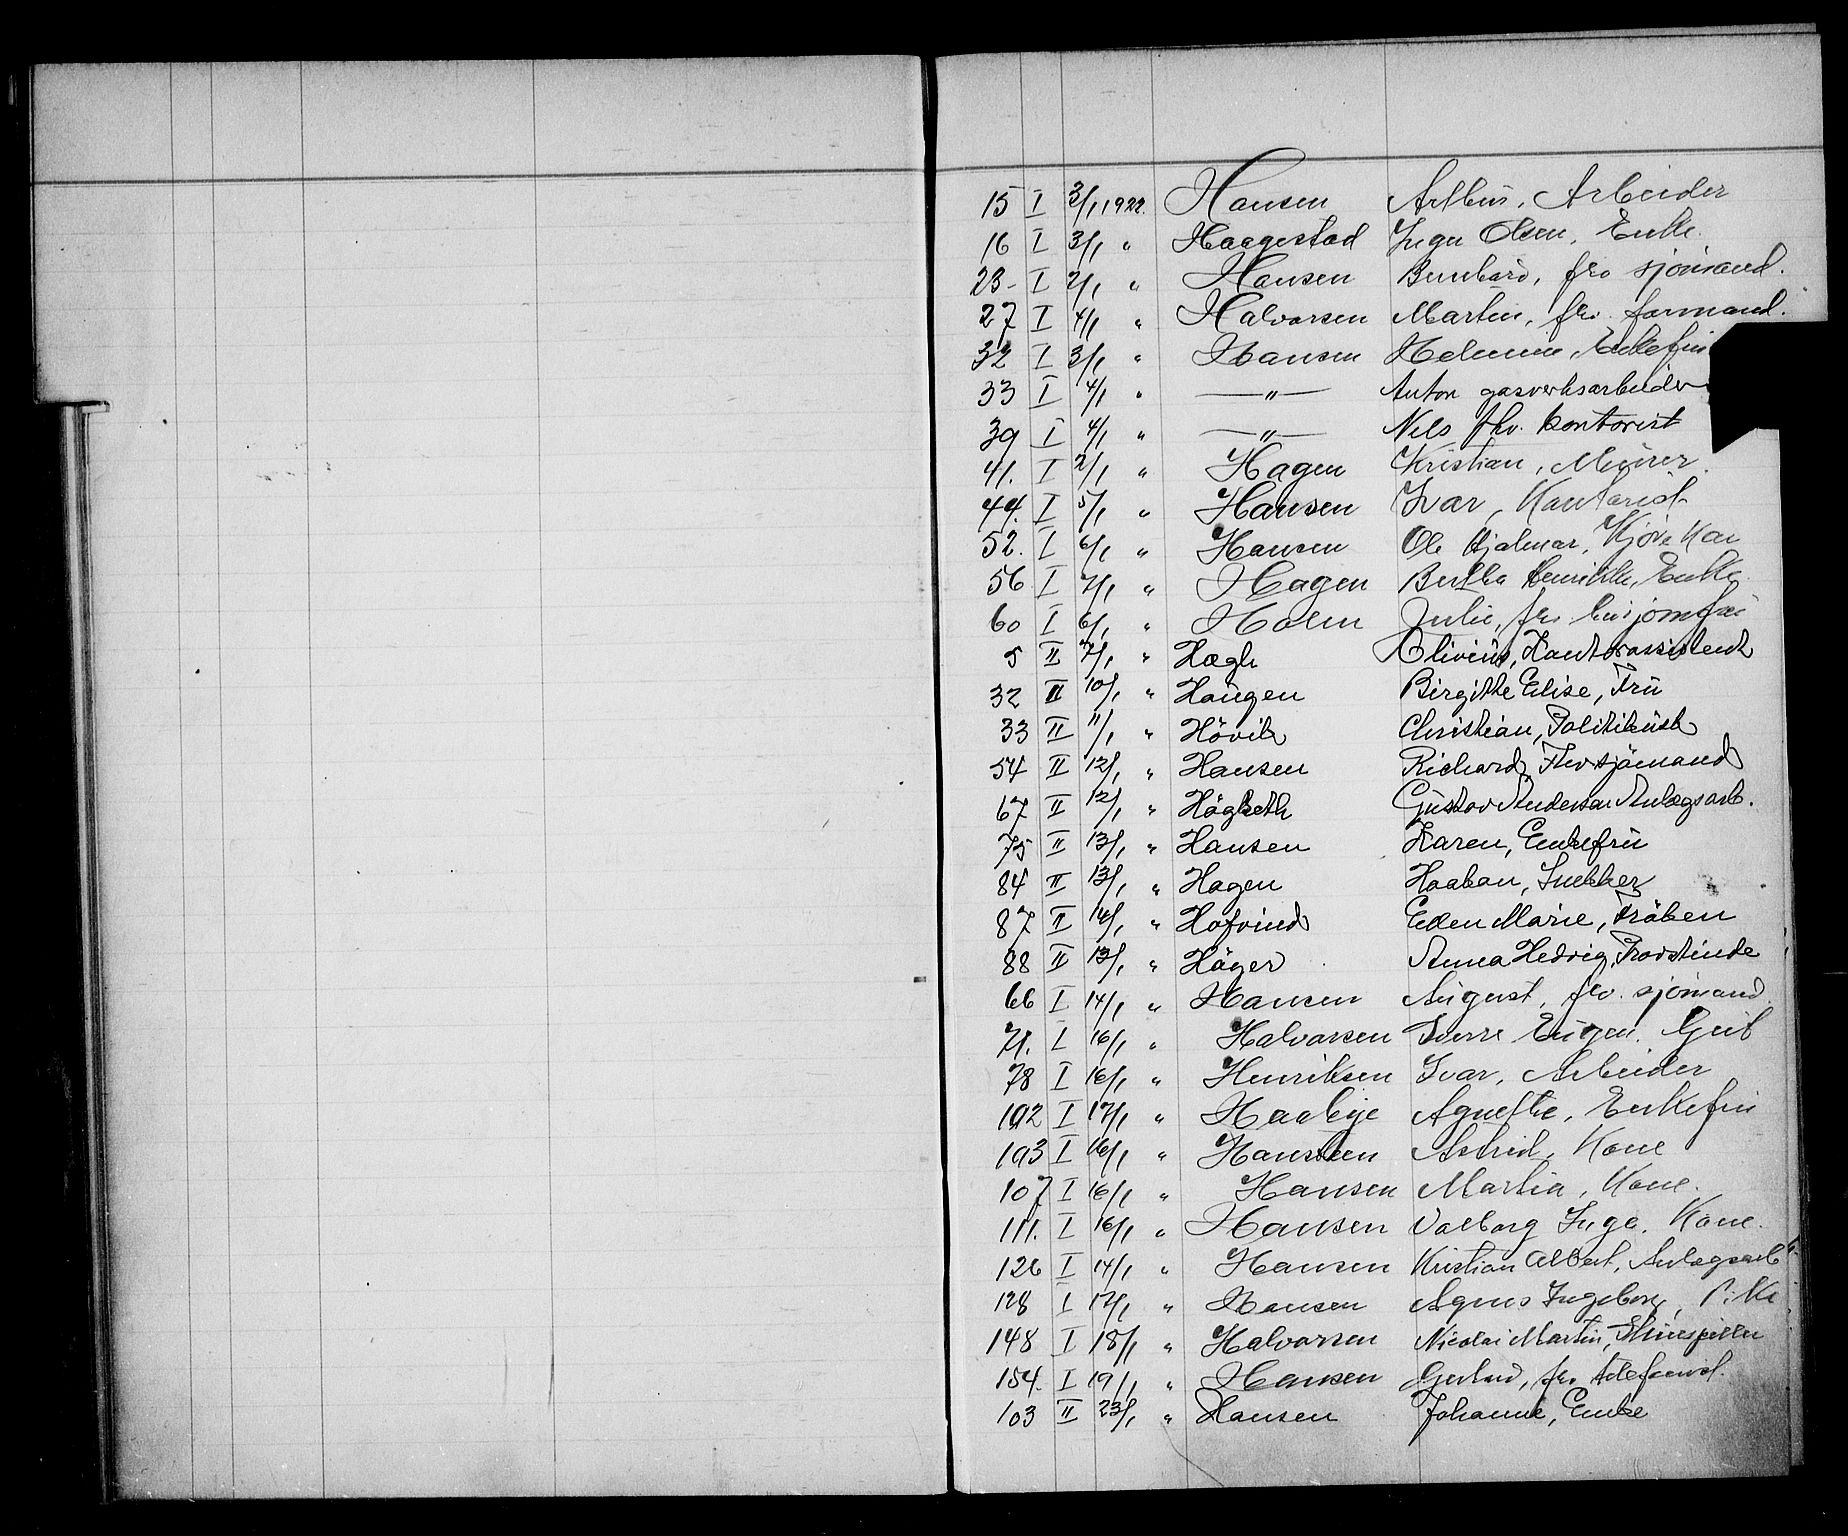 15 I 3/1 1922. Hansen Arthur, Arbeider
16 I 3/1 " Haagestad Inga Olsen, Enke.
23- I 2/1 " Hansen Bernhard, fhv sjömand.
27 I 4/1 " Halvorsen Martin, fhv. formand.
32 I 3/1 " Hansen Helmine, Enkefru
33 I 4/1 " —"— Anton gasverksarbeider
39 I 4/1 " —"— Nils fhv. kontorist
41. I 2/1 " Hagen Kristian, Murer.
44. I 5/1 " Hansen Ivar, Kontorist
52. I 6/1 " Hansen Ole Hjalmar, Kjörekar
56 I 7/1 " Hagen Bertha Henrikke, Enke
60 I 6/1 " Holm Julie, fhv husjomfru
5 II 7/1 " Hægh Olivius, Kontorassistent
32 II 10/1 " Haugen Birgitte Elise, Fru
33 II 11/1 " Hövik Christian, Politikust
54 II 12/1 " Hansen Richard, Fhv sjömand
67 II 12/1 " Högseth Gustav Anderson Anlægsarb.
75 II 13/1 " Hansen Karen, Enkefru
84 II 13/1 " Hagen Haakon, Snekker
87 II 14/1 " Hofvind Ellen Marie, Fröken
88 II 13/1 " Höyer Anna Hedvig, Provstinde
66 I 14/1 " Hansen August, fhv. sjömand
71. I 16/1 " Halvorsen Sverre Eugen. Gut
78 I 16/1 " Henriksen Ivar, Arbeider
102 I 17/1 " Haabye Agnethe, Enkefru
103 I 16/1 " Hansteen Astrid, Kone
107 I 16/1 " Hansen Marthea, Kone.
111. I 16/1 " Hansen Valborg Inga, Kone.
126 I 14/1 " Hansen Kristian Albert, Anlægsarb
128 I 17/1 " Hansen Agnes Ingeborg, Pike
148 I 18/1 " Halvorsen Nicolai Martin, Skuespiller
154. I 19/1 " Hansen Gerhard, fhv
103 II 23/1 " Hansen Johanne, Enke